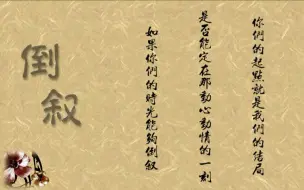 倒叙
你們的起點就是我們的結局
是否能定在那動心動情的一刻
如果你們的時光能夠倒叙